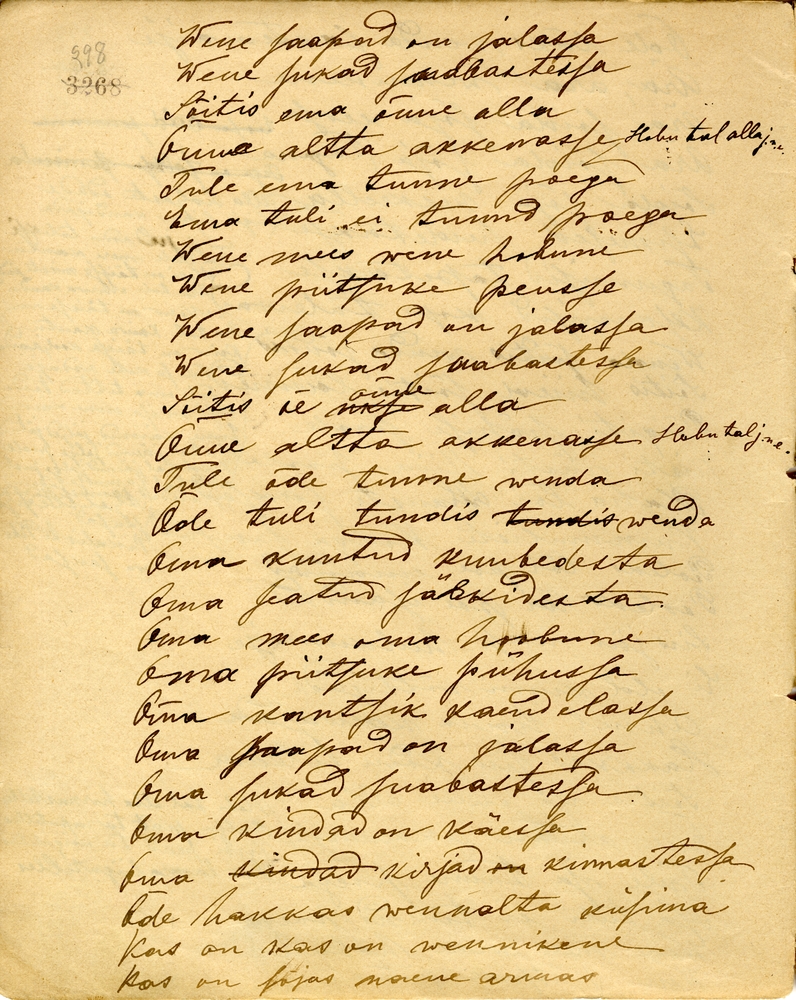 298
3268
Wene saapad on jalassa
Wene sukad saabastessa
Sõitis ema õune alla
Õuna altta akkenasse Hobu tal alla j.n.e.
Tule ema tunne poega
Ema tuli ei tunnd poega
Wene mees wene hobune
Wene piitsuke peusse
Wene saapad on jalassa
Wene sukad saabastessa
Sõitis õe õune alla
Õune altta akkenasse Hobu tal j.n.e.
Tule õde tunne wenda
Õde tuli tundis tundis wenda
Oma kuntud kuubedesta
Oma seatud särkidesta
Oma mees oma hoobune
Oma piitsuke pihussa
Oma kantsik kaendelassa
Oma saapad on jalassa
Oma sukad suabastessa
Oma kindad on käessa
Oma kindad kirjad on kinnastessa
Õde hakkas wennalta küsima
Kas on kas on wennikene
Kas on sõjas naene armas